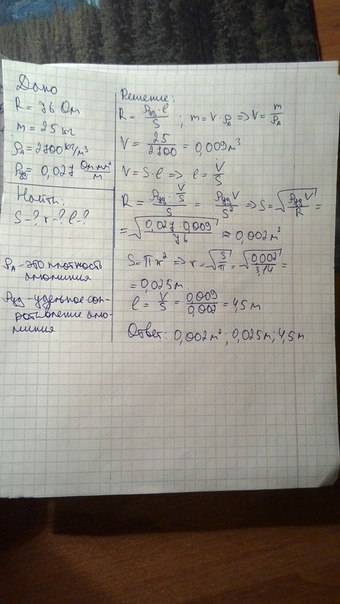 Дано
R = 76 Ом
m = 25 кг
ρд = 2700 кг/м³
ρуд = 0,027 Ом·мм²/м
Найти:
S-? r-? l-?
ρд - это плотность алюминия
ρуд - удельное сопротивление алюминия
Решение:
R = ρуд·l/S ; m = V·ρд => V = m/ρд
V = 25/2700 = 0,009 м³
V = S·l => l = V/S
R = ρуд V/S / S = ρуд V/S² => S = √(ρуд V/R) =
= √(0,027 0,009/76) ≈ 0,002 м²
S = πr² => r = √(S/π) = √(0,002/3,14) =
= 0,025 м
l = V/S = 0,009/0,002 = 4,5 м
Ответ: 0,002 м²; 0,025 м; 4,5 м